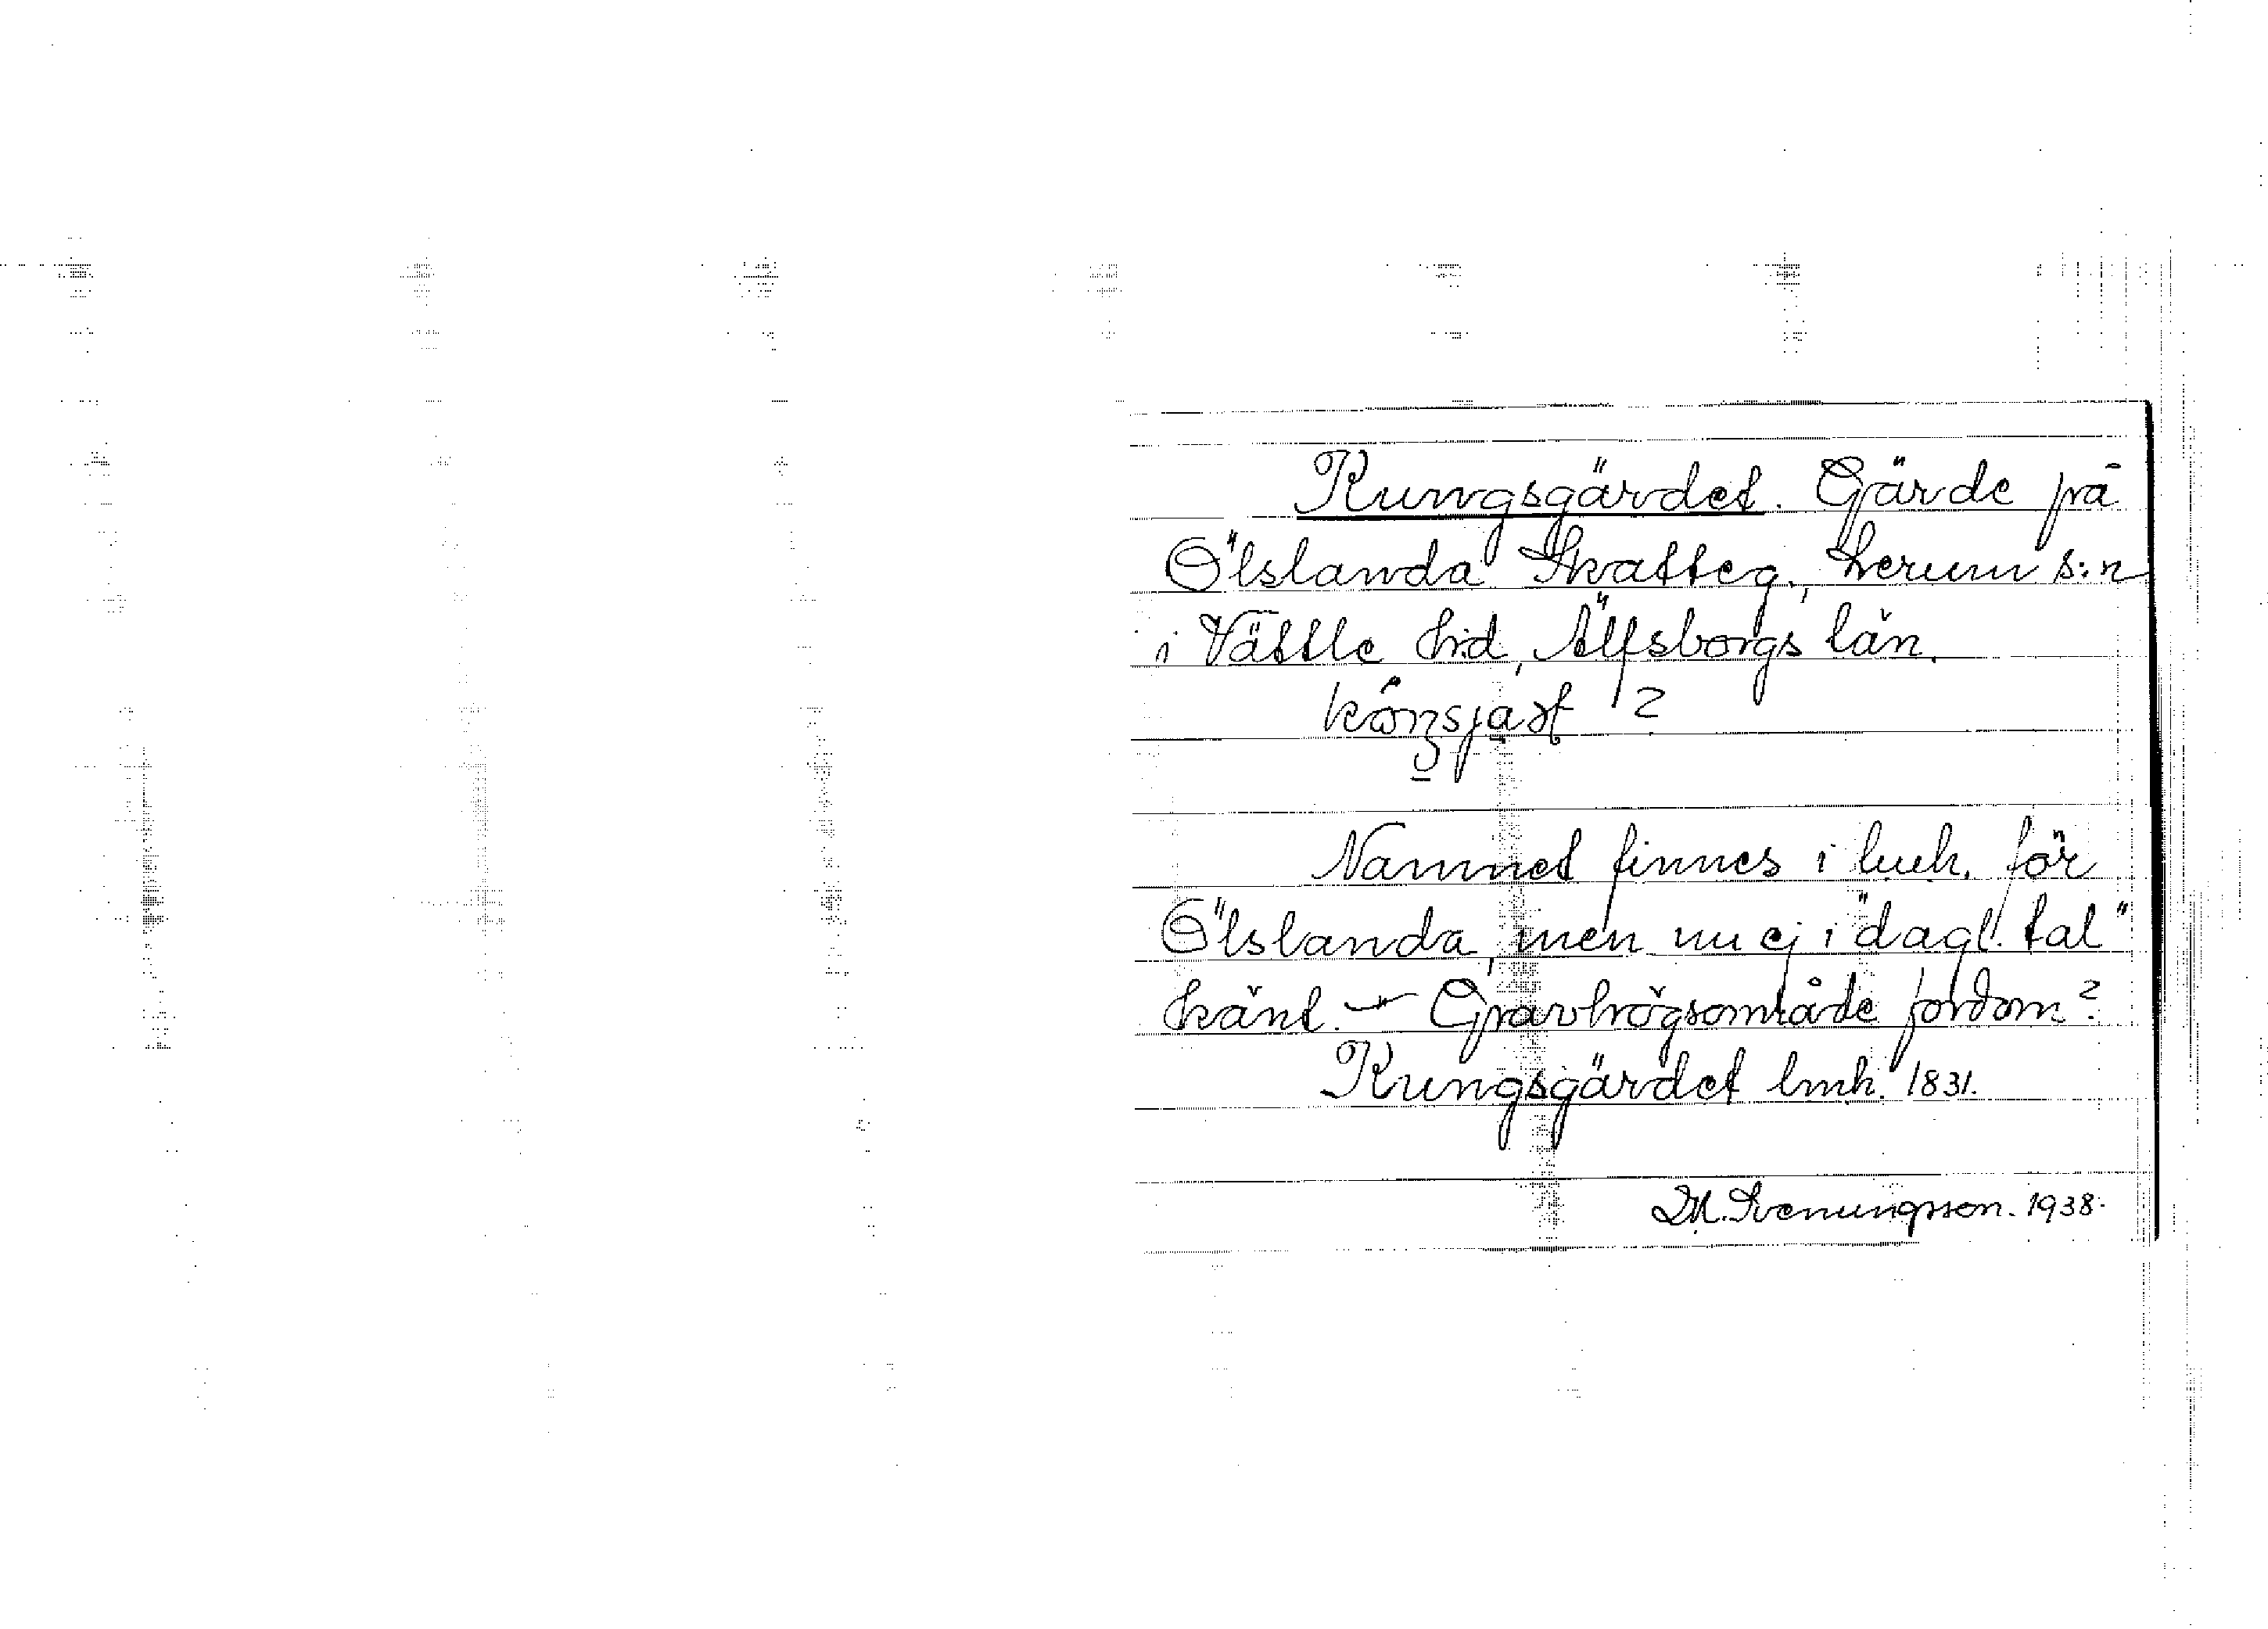 Kungsgärdet. Gärde på
Ölslanda Skatteg., Lerum s:n
i Vättle h:d, Älfsborgs län.
?
Namnet finnes i lmh. för
Ölslanda, men nu ej i "dagl. tal"
känt. - Gravhögsområde fordom?
Kungsgärdet lmh. 1831.
M. Svenungsson. 1938.